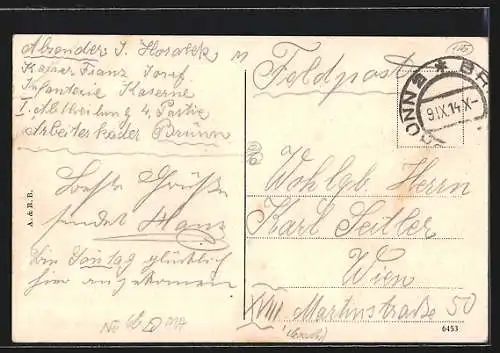 Absender J. Hosatek
Kaiser Franz Josef
Infanterie Kaserne
I. Abtheilung 4. Partie
Arbeiterkader Brünn
Beste Grüße
sendet Hans
Bin Sontag glücklich
hier angekommen
A. & B. B.
Feldpost
BRÜNN 8 * BR
9.IX.14.X-
Wohlgb. Herrn
Karl Seitler
Wien
XVIII Martinstraße 50
6453